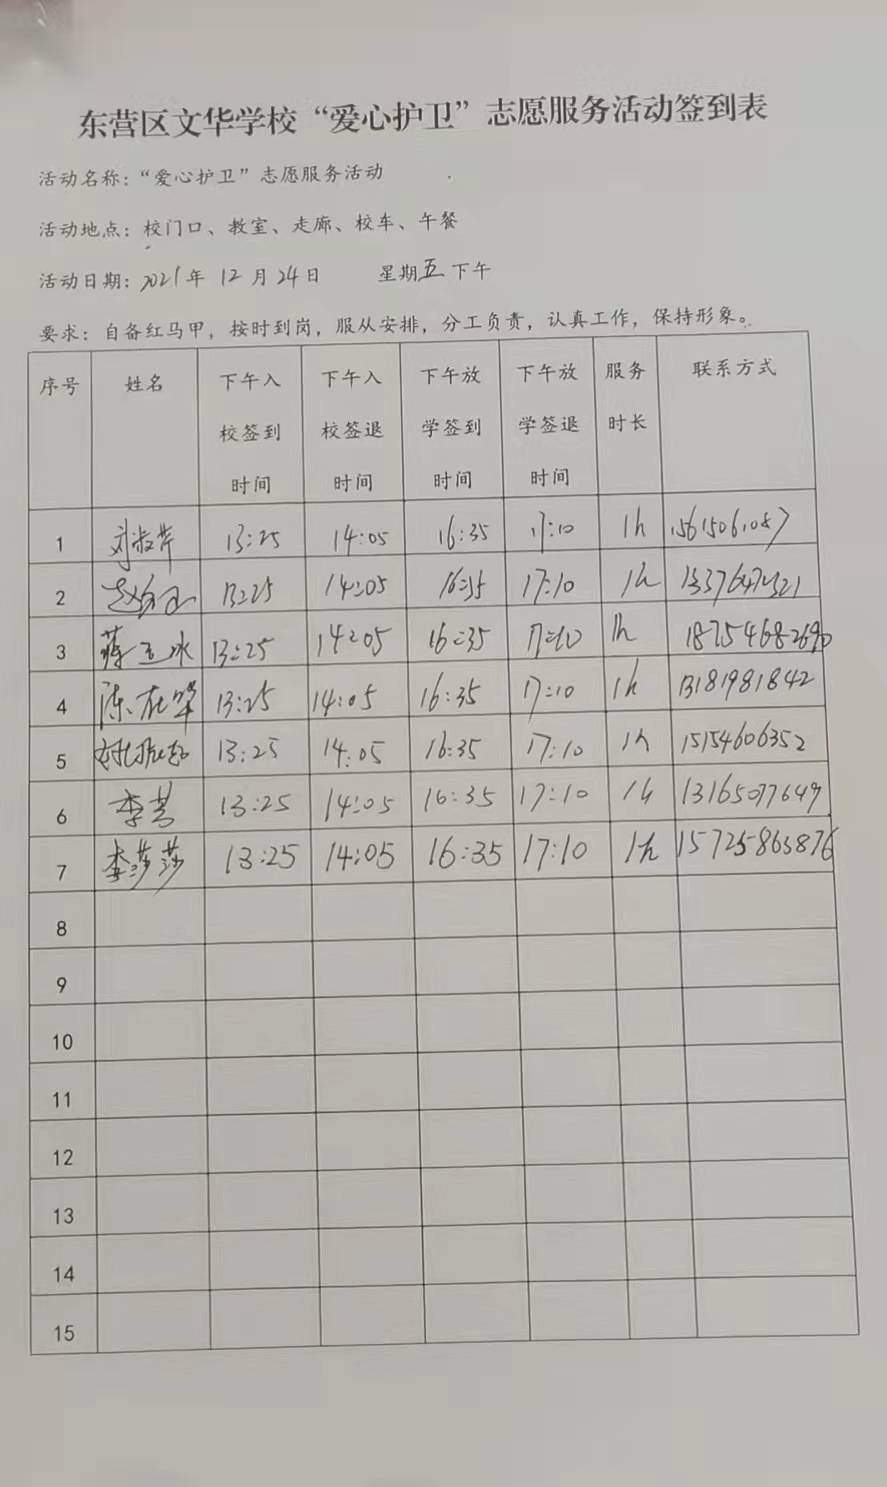 东营区文华学校“爱心护卫”志愿服务活动签到表
活动名称：“爱心护卫”志愿服务活动
活动地点：校门口、教室、走廊、校车、午餐
活动日期：2021年 12月24日 星期五下午
要求：自备红马甲，按时到岗，服从安排，分工负责，认真工作，保持形象。
序号 姓名 下午入校签到时间 下午入校签退时间 下午放学签到时间 下午放学签退时间 服务时长 联系方式
1 刘淑芹 13:25 14:05 16:35 17:10 1h 15615061087
2 13:25 14:05 16:35 17:10 1h
3 蒋玉冰 13:25 14:05 16:35 17:10 1h 18754682690
4 13:25 14:05 16:35 17:10 1h 13181981842
5 13:25 14:05 16:35 17:10 1h 15154606352
6 李芳 13:25 14:05 16:35 17:10 1h 13165077649
7 李莎莎 13:25 14:05 16:35 17:10 1h 15725863876
8
9
10
11
12
13
14
15